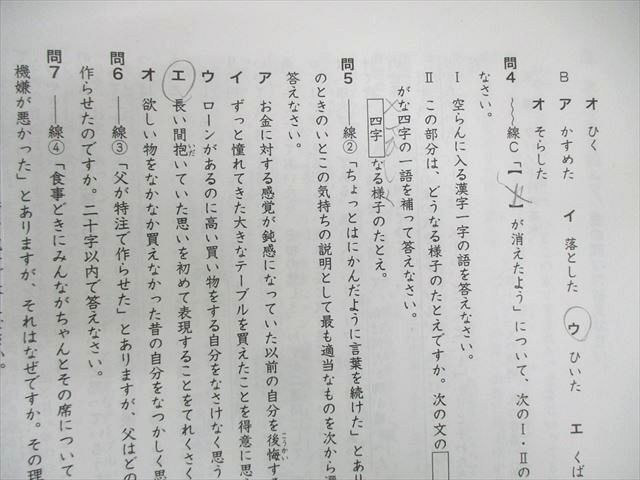 オ ひく
B ア かすめた イ 落とした ウ ひいた エ くば
オ そらした
問4 〜〜線C「【 】が消えたよう」について、次のⅠ・Ⅱの
なさい。
Ⅰ 空らんに入る漢字一字の語を答えなさい。
Ⅱ この部分は、どうなる様子のたとえですか。次の文の
がな四字の一語を補って答えなさい。
四字 なる様子のたとえ。
問5 ――線②「ちょっとはにかんだように言葉を続けた」とあり
のときのいとこの気持ちの説明として最も適当なものを次から選
答えなさい。
ア お金に対する感覚が鈍感になっていた以前の自分を後悔(こうかい)す
イ ずっと憧れてきた大きなテーブルを買えたことを得意に思
ウ ローンがあるのに高い買い物をする自分をなさけなく思う
エ 長い間抱(いだ)いていた思いを初めて表現することをてれくさく
オ 欲しい物をなかなか買えなかった昔の自分をなつかしく思
問6 ――線③「父が特注で作らせた」とありますが、父はどの
作らせたのですか。二十字以内で答えなさい。
問7 ――線④「食事どきにみんながちゃんとその席について
機嫌が悪かった」とありますが、それはなぜですか。その理